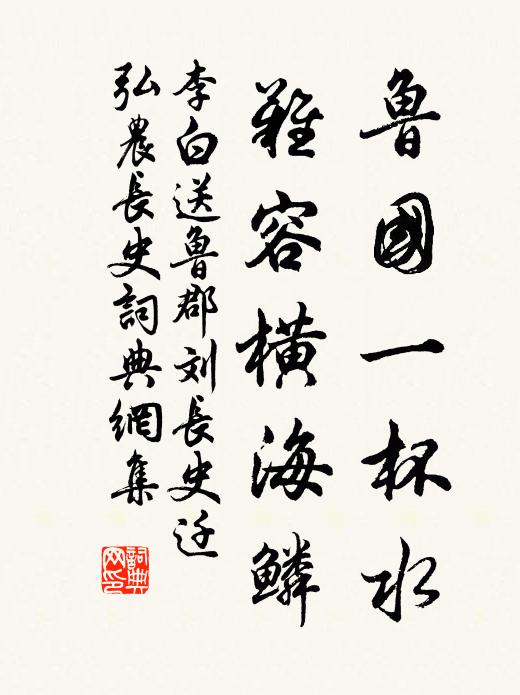 魯國一杯水
難容橫海鱗
李白送魯郡刘長史迁
弘農長史詞典網集
詞典网印